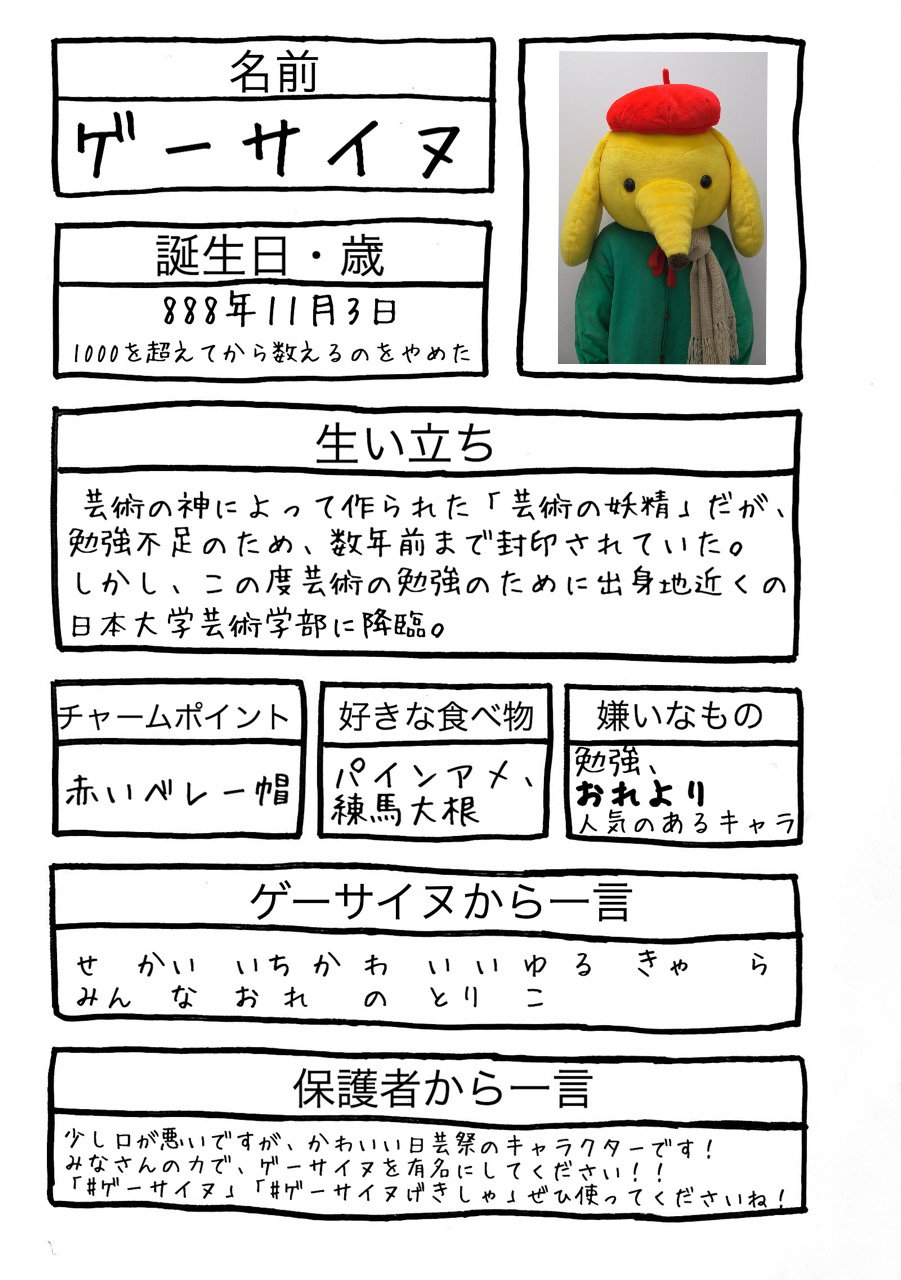 名前
ゲーサイヌ
誕生日・歳
888年11月3日
1000を超えてから数えるのをやめた
生い立ち
芸術の神によって作られた「芸術の妖精」だが、
勉強不足のため、数年前まで封印されていた。
しかし、この度芸術の勉強のために出身地近くの
日本大学芸術学部に降臨。
チャームポイント
赤いベレー帽
好きな食べ物
パインアメ、
練馬大根
嫌いなもの
勉強、
おれより
人気のあるキャラ
ゲーサイヌから一言
せ かい いち か わ い い ゆ る きゃ ら
みん な お れ の と り こ
保護者から一言
少し口が悪いですが、かわいい日芸祭のキャラクターです！
みなさんの力で、ゲーサイヌを有名にしてください！！
「#ゲーサイヌ」「#ゲーサイヌげきしゃ」ぜひ使ってくださいね！